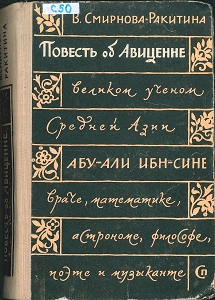 с50
В. Смирнова-Ракитина
Повесть об Авиценне
великом ученом
Средней Азии
АБУ-АЛИ ИБН-СИНЕ
враче, математике,
астрономе, философе,
поэте и музыканте
СП
РАКИТИНА
Повесть об Авиценне